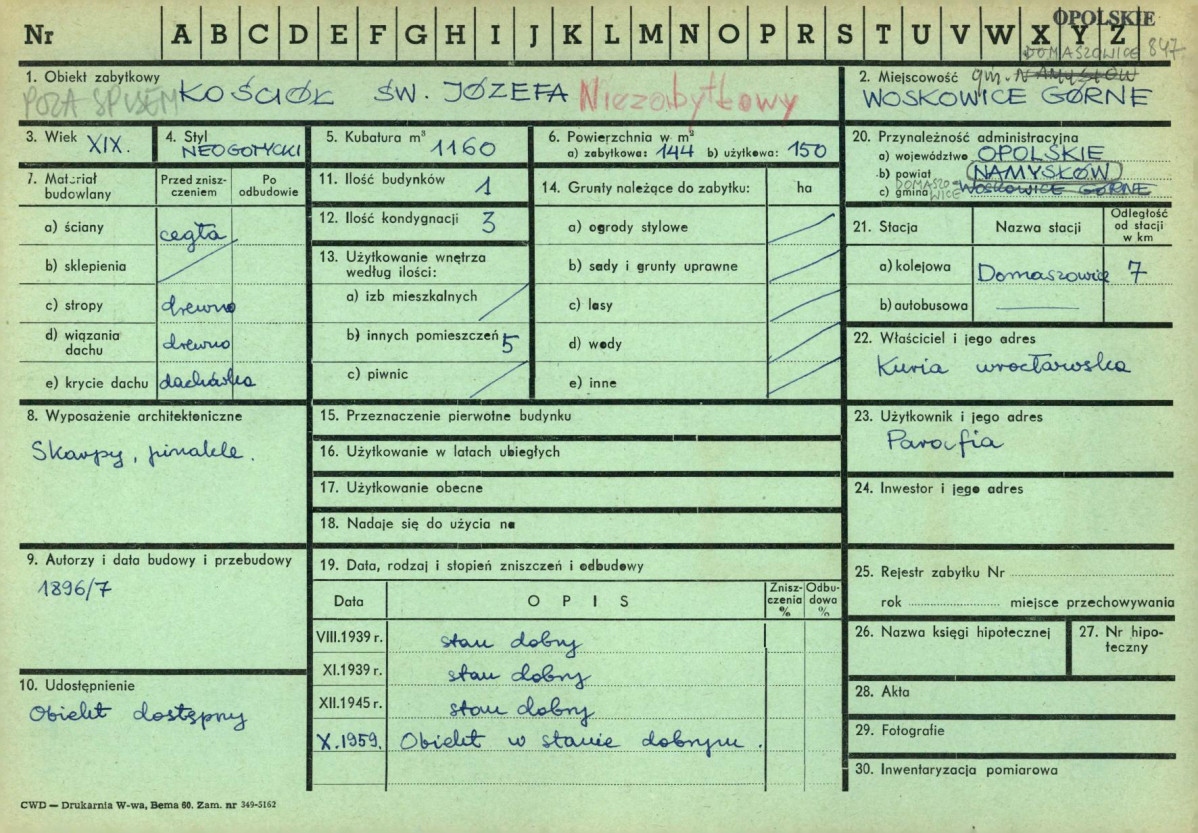 OPOLSKIE
Nr A B C D E F G H I J K L M N O P R S T U V W X Y Z
DOMASZOWICE 847.
1. Obiekt zabytkowy
POZA SPISEM KOŚCIÓŁ ŚW. JÓZEFA Niezabytkowy
2. Miejscowość gm. NAMYSŁÓW
WOSKOWICE GÓRNE
3. Wiek XIX.
4. Styl
NEOGOTYCKI
5. Kubatura m³ 1160
6. Powierzchnia w m²
a) zabytkowa: 144 b) użytkowa: 150
20. Przynależność administracyjna
a) województwo OPOLSKIE
b) powiat NAMYSŁÓW
c) gmina DOMASZOWICE WOSKOWICE GÓRNE
7. Materiał budowlany
Przed zniszczeniem
Po odbudowie
a) ściany cegła
b) sklepienia
c) stropy drewno
d) wiązania dachu drewno
e) krycie dachu dachówka
11. Ilość budynków 1
12. Ilość kondygnacji 3
13. Użytkowanie wnętrza
według ilości:
a) izb mieszkalnych
b) innych pomieszczeń 5
c) piwnic
14. Grunty należące do zabytku: ha
a) ogrody stylowe
b) sady i grunty uprawne
c) lasy
d) wody
e) inne
21. Stacja
Nazwa stacji
Odległość od stacji w km
a) kolejowa Domaszowice 7
b) autobusowa
22. Właściciel i jego adres
Kuria wrocławska
8. Wyposażenie architektoniczne
Skarpy, pinakle.
15. Przeznaczenie pierwotne budynku
16. Użytkowanie w latach ubiegłych
17. Użytkowanie obecne
18. Nadaje się do użycia na
23. Użytkownik i jego adres
Parafia
24. Inwestor i jego adres
9. Autorzy i data budowy i przebudowy
1896/7
19. Data, rodzaj i stopień zniszczeń i odbudowy
Data
OPIS
Zniszczenia %
Odbudowa %
VIII.1939 r. stan dobry
XI.1939 r. stan dobry
XII.1945 r. stan dobry
X.1959. Obiekt w stanie dobrym.
10. Udostępnienie
Obiekt dostępny
25. Rejestr zabytku Nr
rok miejsce przechowywania
26. Nazwa księgi hipotecznej
27. Nr hipoteczny
28. Akta
29. Fotografie
30. Inwentaryzacja pomiarowa
CWD — Drukarnia W-wa, Bema 60. Zam. nr 349-5162